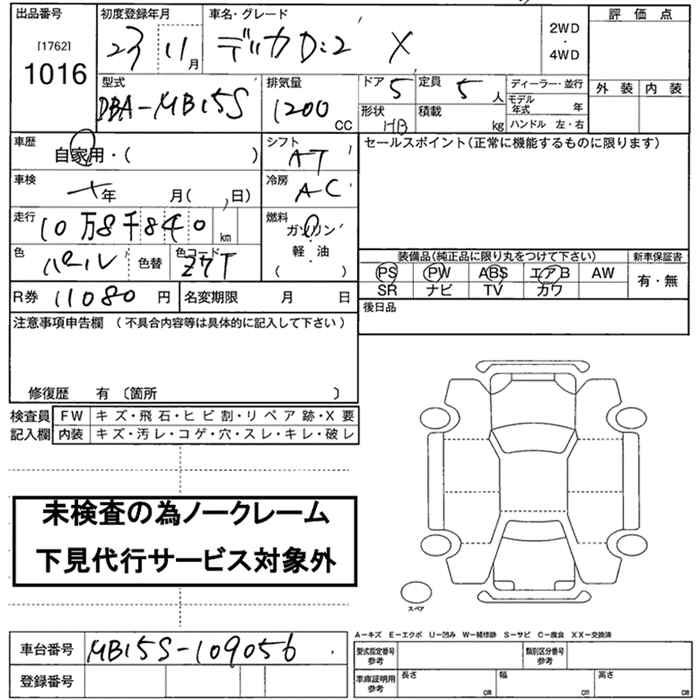 出品番号 初度登録年月 車名・グレード 評価点
[1762] 23 11月 デリカD:2 X 2WD・4WD
1016
型式 排気量 ドア 5 定員 5人 ディーラー・並行 外装 内装
DBA-MB15S 1200cc 形状 HB 積載 kg モデル年式 年
ハンドル 左・右
車歴 自家用・( ) シフト AT セールスポイント(正常に機能するものに限ります)
車検 年 月( 、日) 冷房 AC
走行 10万8千840km 燃料 ガソリン
軽・油
( )
色 パール 色替 色コード Z7T 装備品(純正品に限り丸をつけて下さい) 新車保証書
PS PW ABS エアB AW 有・無
SR ナビ TV カワ
R券 11080円 名変期限 月 日 後日品
注意事項申告欄 (不具合内容等は具体的に記入して下さい)
修復歴 有 〔箇所 〕
検査員 FW キズ・飛石・ヒビ割・リペア跡・X要
記入欄 内装 キズ・汚レ・コゲ・穴・スレ・キレ・破レ
未検査の為ノークレーム
下見代行サービス対象外
スペア
A−キズ E−エクボ U−凹み W−補修跡 S−サビ C−腐食 XX−交換済
車台番号 MB15S-109056 型式指定番号 参考 類別区分番号 参考
登録番号 車庫証明用 参考 長さ cm 幅 cm 高さ cm